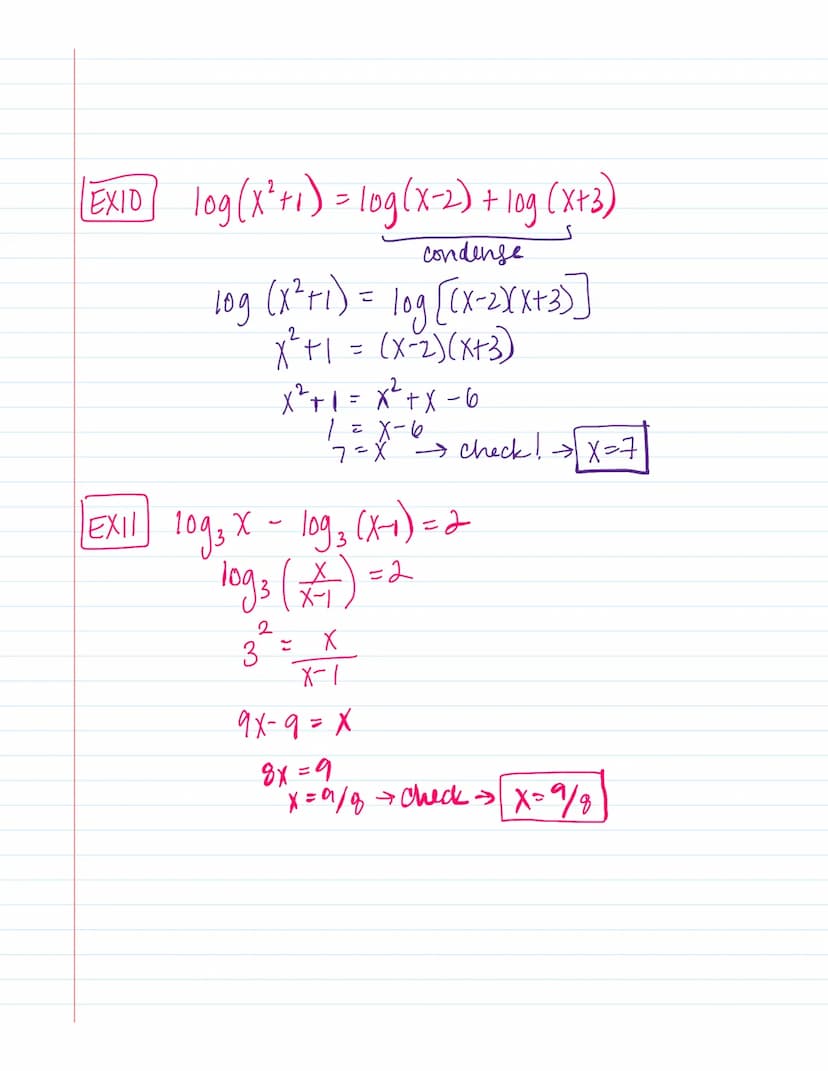 EX10 log(x²+1) = log(x-2) + log(x+3)
condense
log (x²+1) = log[(x-2)(x+3)]
x²+1 = (x-2)(x+3)
x²+1 = x²+x-6
1 = x-6
7=x → check! → x=7
EX11 log₃x - log₃(x-1)=2
log₃(x/x-1) =2
3² = x/x-1
9x-9=x
8x=9
x=9/8 → check → x=9/8